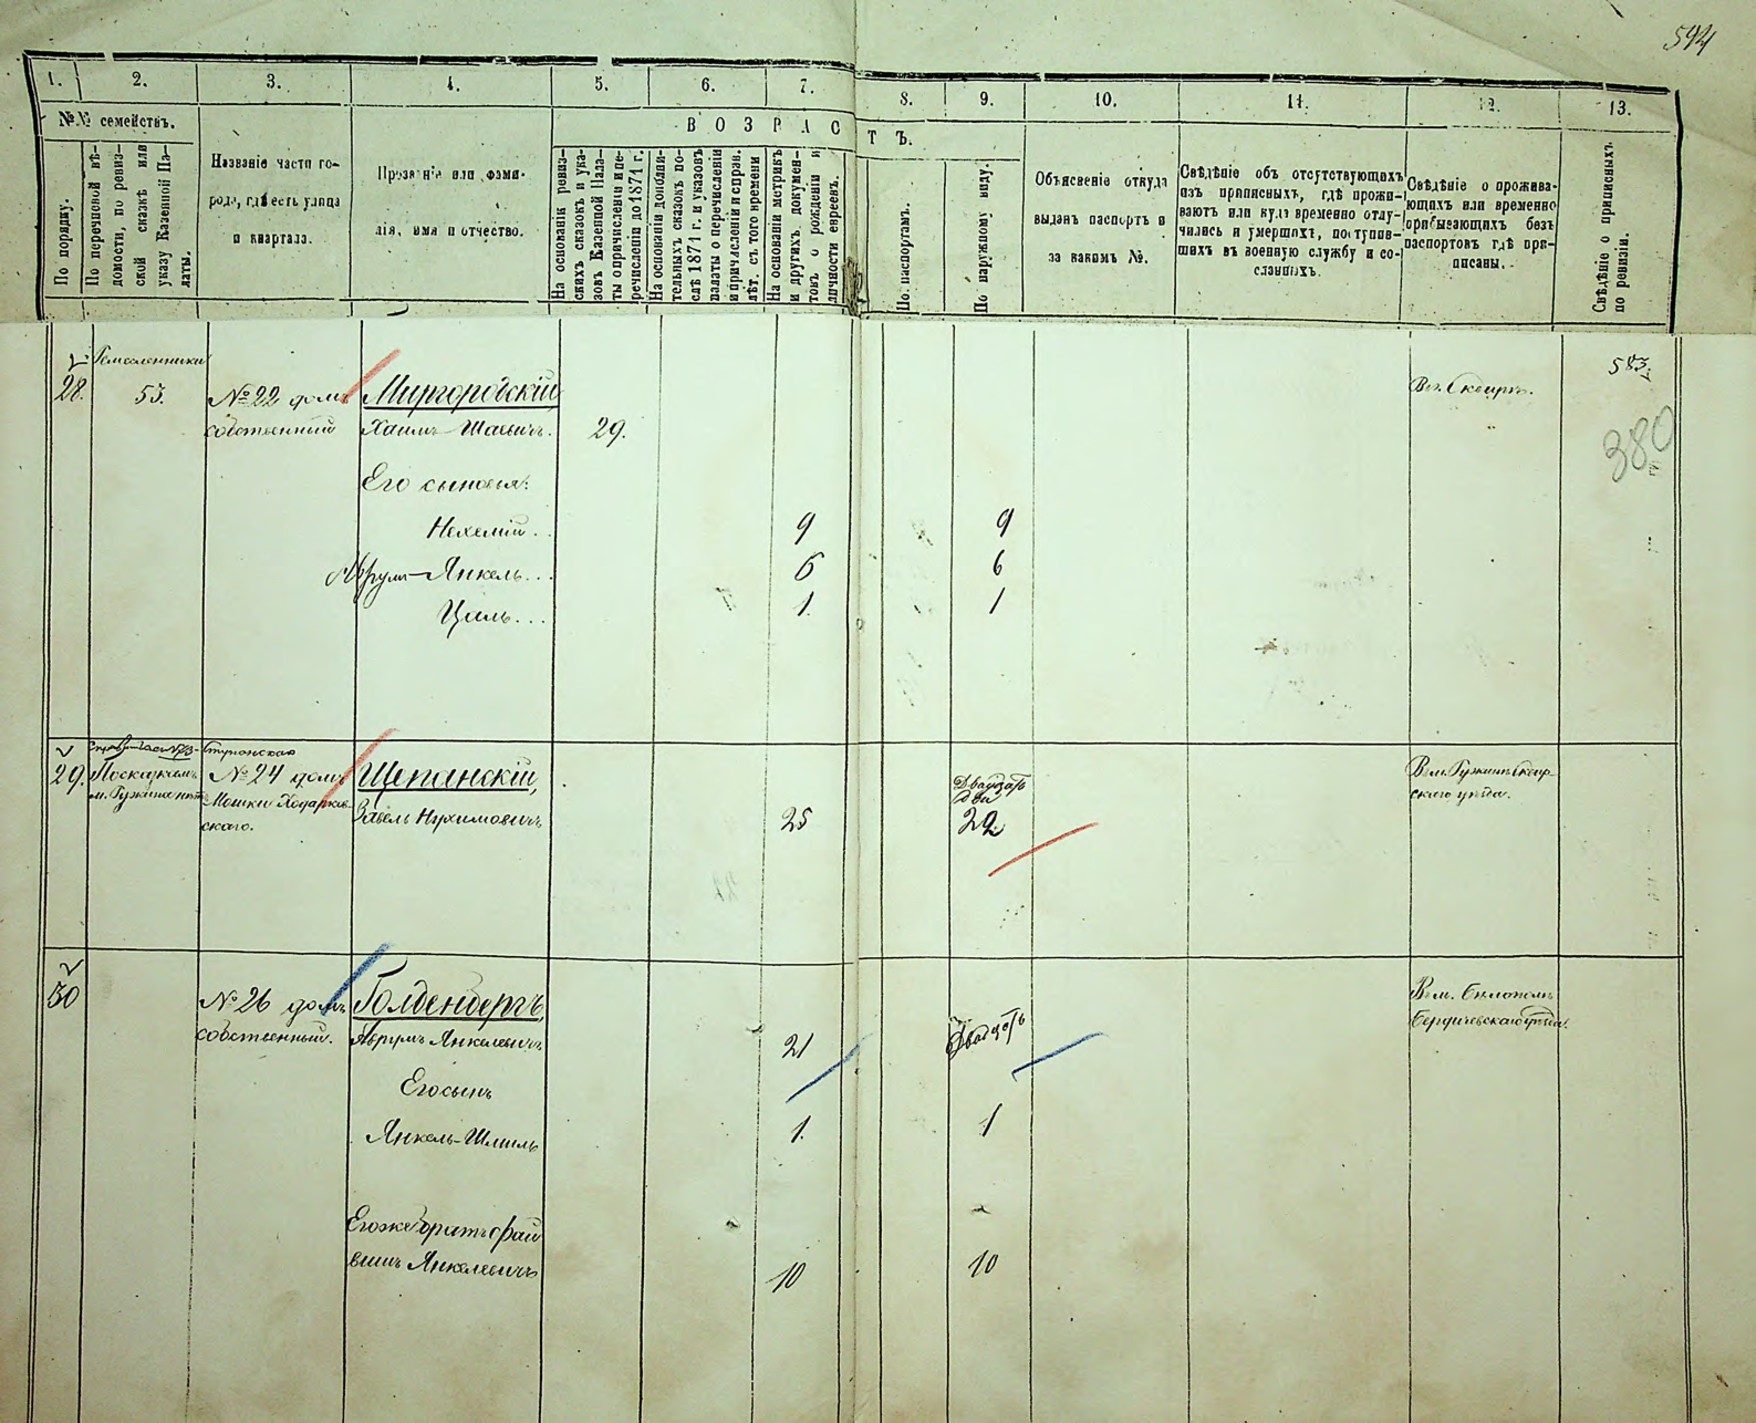 594
1. 2. 3. 4. 5. 6. 7. 8. 9. 10. 11. 12. 13.
№№ семействъ.
ВОЗРАСТЪ.
По порядку.
По перечневой вѣ-
домости, по ревиз-
ской сказкѣ или
указу Казенной Па-
латы.
Названіе части го-
рода, гдѣ есть улица
и квартала.
Прозваніе или фами-
лія, имя и отчество.
На основаніи ревиз-
скихъ сказокъ и ука-
зовъ Казенной Пала-
ты о причисленіи и пе-
речисленіи до 1871 г.
На основаніи дополни-
тельныхъ сказокъ по-
слѣ 1871 г. и указовъ
палаты о перечисленіи
и причисленіи и справ.
лѣт. съ того времени
На основаніи метрикъ
и другихъ докумен-
товъ о рожденіи и
личности евреевъ.
По паспортамъ.
По наружному виду.
Объясненіе откуда
выданъ паспортъ и
за какимъ №.
Свѣдѣніе объ отсутствующихъ
изъ приписныхъ, гдѣ прожи-
ваютъ или куда временно отлу-
чились и умершихъ, поступив-
шихъ въ военную службу и со-
сланныхъ.
Свѣдѣніе о прожива-
ющихъ или временно
прибывающихъ безъ
паспортовъ гдѣ при-
писаны.
Свѣдѣніе о приписныхъ
по ревизіи.
Ремесленники
28. 53. № 22 домъ Миргородскій Вг. Сквирѣ. 583.
собственный Хаимъ-Шаевичъ. 29. 380
Его сыновья:
Нехемій.. 9 9
Аврумъ-Янкель... 6 6
Циль... 1. 1
29. № 24 домъ Щепанскій, Двадцать
два Вм. Ружинѣ Сквир-
скаго уѣзда.
Мошки Ходорков-
скаго. Нухимовичъ 25 22.
30 № 26 домъ Голденбергъ, Вм. Бѣлополѣ
Бердичевскаго уѣзда.
собственный. Аврумъ Янкелевичъ 21 Двадцать
Его сынъ
Янкель-Шмиль 1. 1
Его же братъ Фай
вишъ Янкелевичъ 10 10